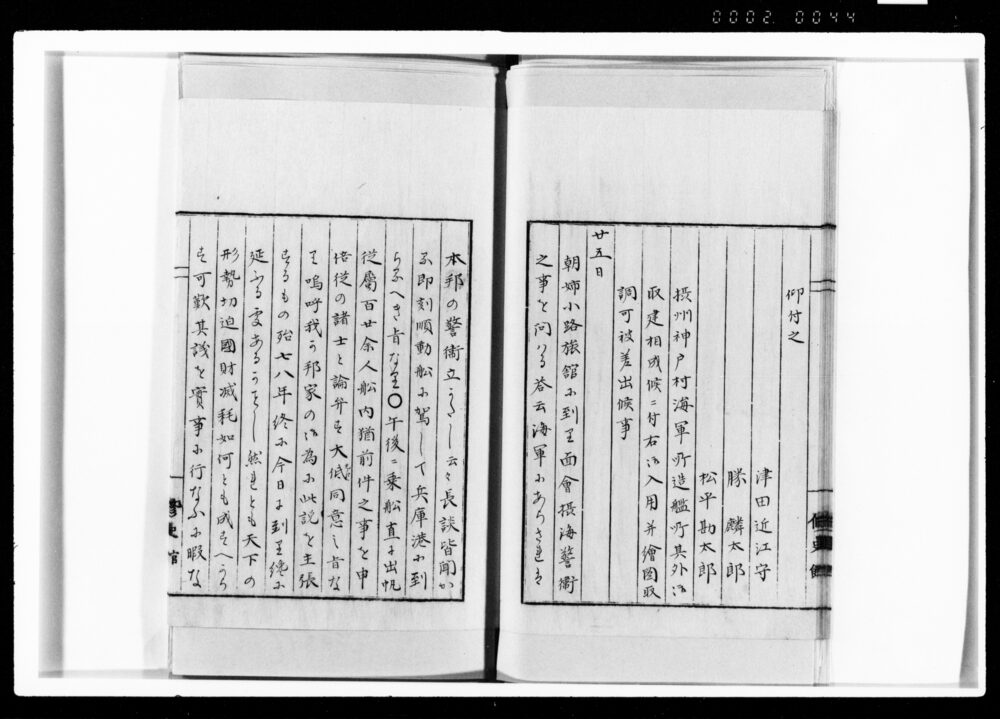 0002 0044
仰付之
津田近江守
勝麟太郎
松平勘太郎
摂州神戸村海軍所造艦所其外御
取建相成候ニ付右御入用并繪圖取
調可被差出候事
廿五日
朝姉小路旅舘に到り面會摂海警衛
之事を問はる答云海軍にあらされは
本邦の警衛立かたし云々長談皆聞か
る即刻順動船に駕して兵庫港に到
らるへき旨なり〇午後ニ乗船直に出帆
従属百廿余人船内猶前件之事を申
陪従の諸士と論弁す大低同意之旨な
り嗚呼我か邦家の御為に此説を主張
するもの殆七八年終に今日に到り纔に
延ふる處あるかことし然れとも天下の
形勢切迫國財減耗如何とも成すへから
す可歎其議を實事に行なふに暇な
修史館
修史館